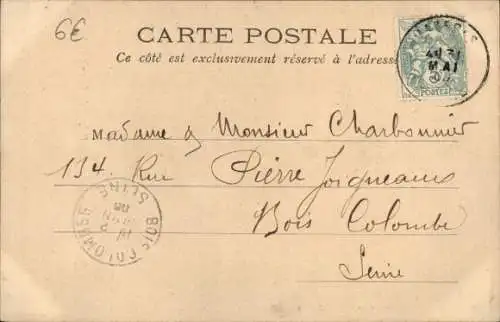 6€
CARTE POSTALE
Ce côté est exclusivement réservé à l'adresse
Madame & Monsieur Charbonnier
134. Rue Pierre Joigneaux
Bois Colombe
Seine
MAI
POSTES
BOIS COLOMBES
SEINE